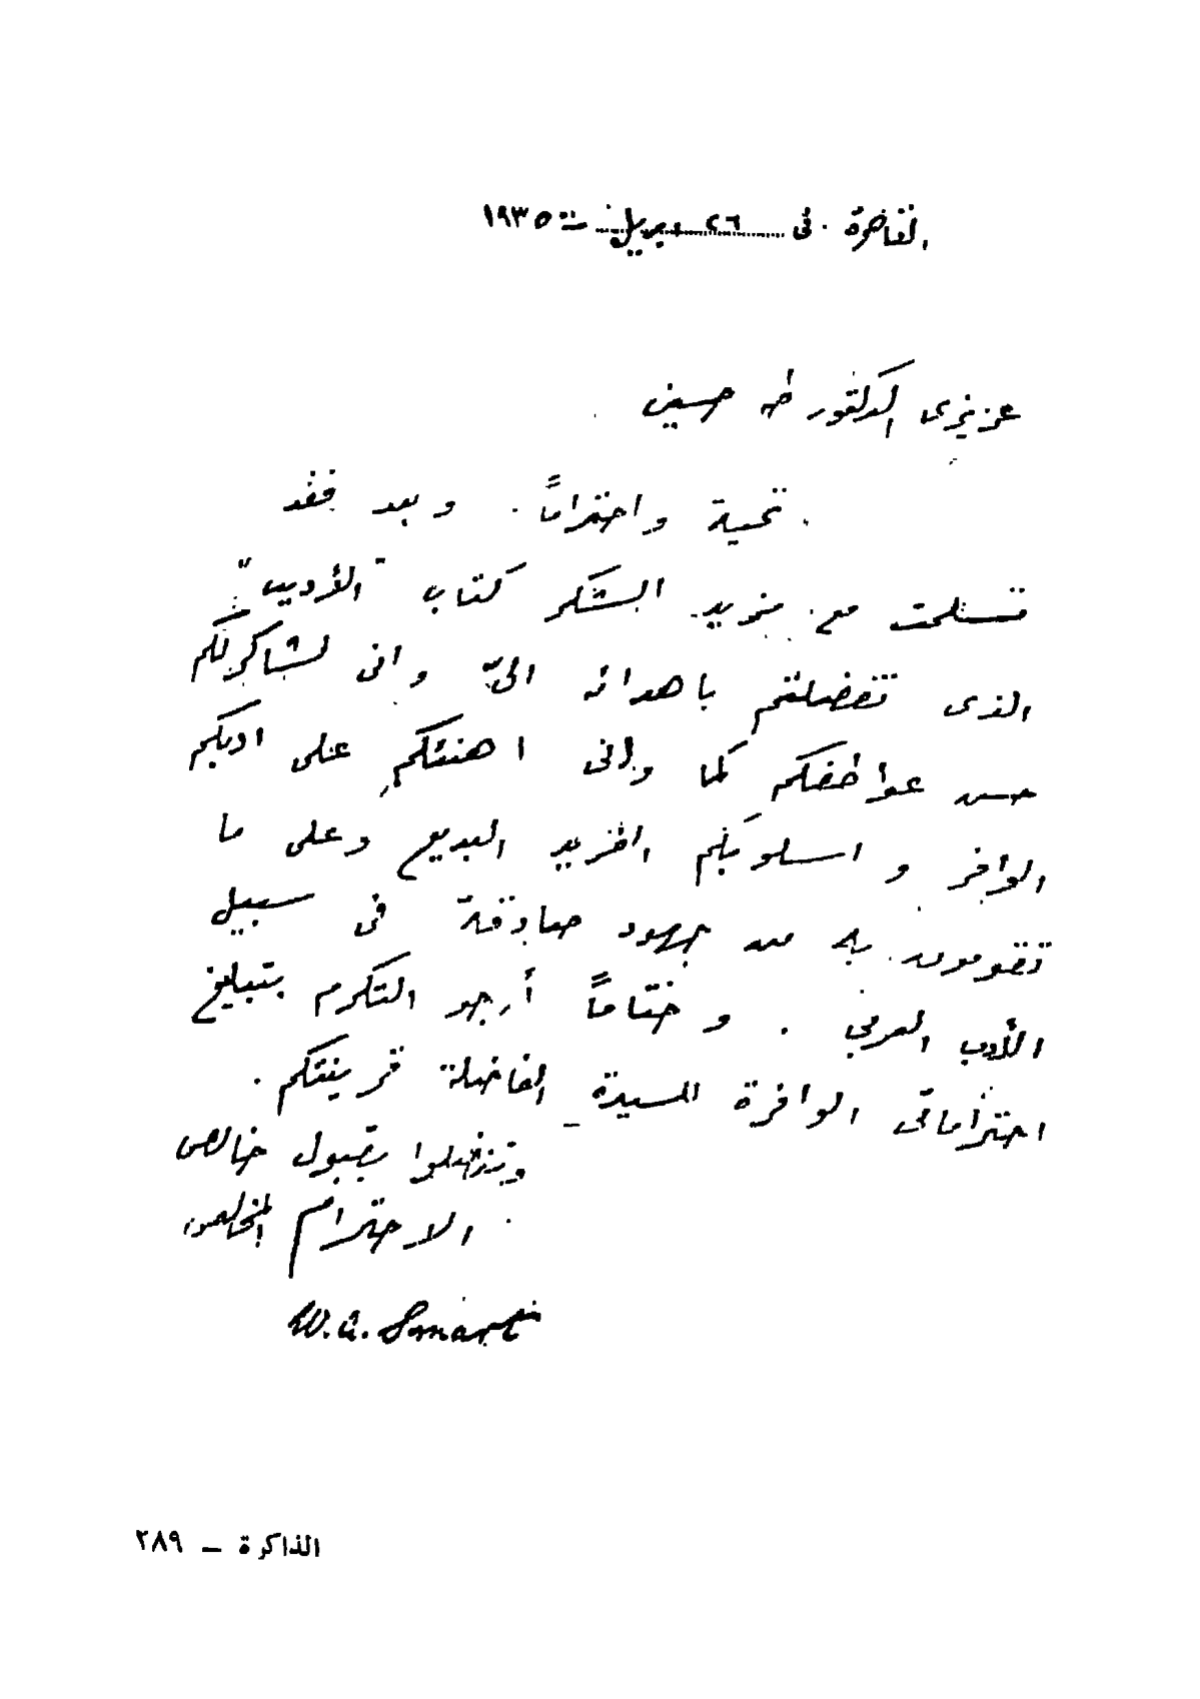 القاهرة . فى ٢٦ ابريل سنة ١٩٣٥
عزيزى الدكتور طه حسين
تحية واحتراماً . وبعد فقد
تسلمت مع مزيد الشكر كتاب "الأديب"
الذى تفضلتم باهدائه الىّ وانى لشاكر لكم
حسن عواطفكم كما وانى اهنئكم على ادبكم
الوافر و اسلوبكم الفريد البديع وعلى ما
تقومون به من جهود صادقة فى سبيل
الأدب العربي . وختاماً أرجو التكرم بتبليغ
احتراماتى الوافرة للسيدة الفاضلة قرينتكم .
وتفضلوا بقبول خالص
الاحترام المخلص
W. A. Smart
الذاكرة – ٢٨٩